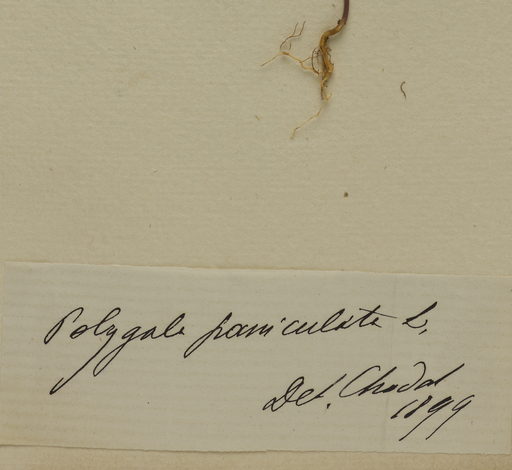 Polygala paniculata L.
Det. Chodat
1899